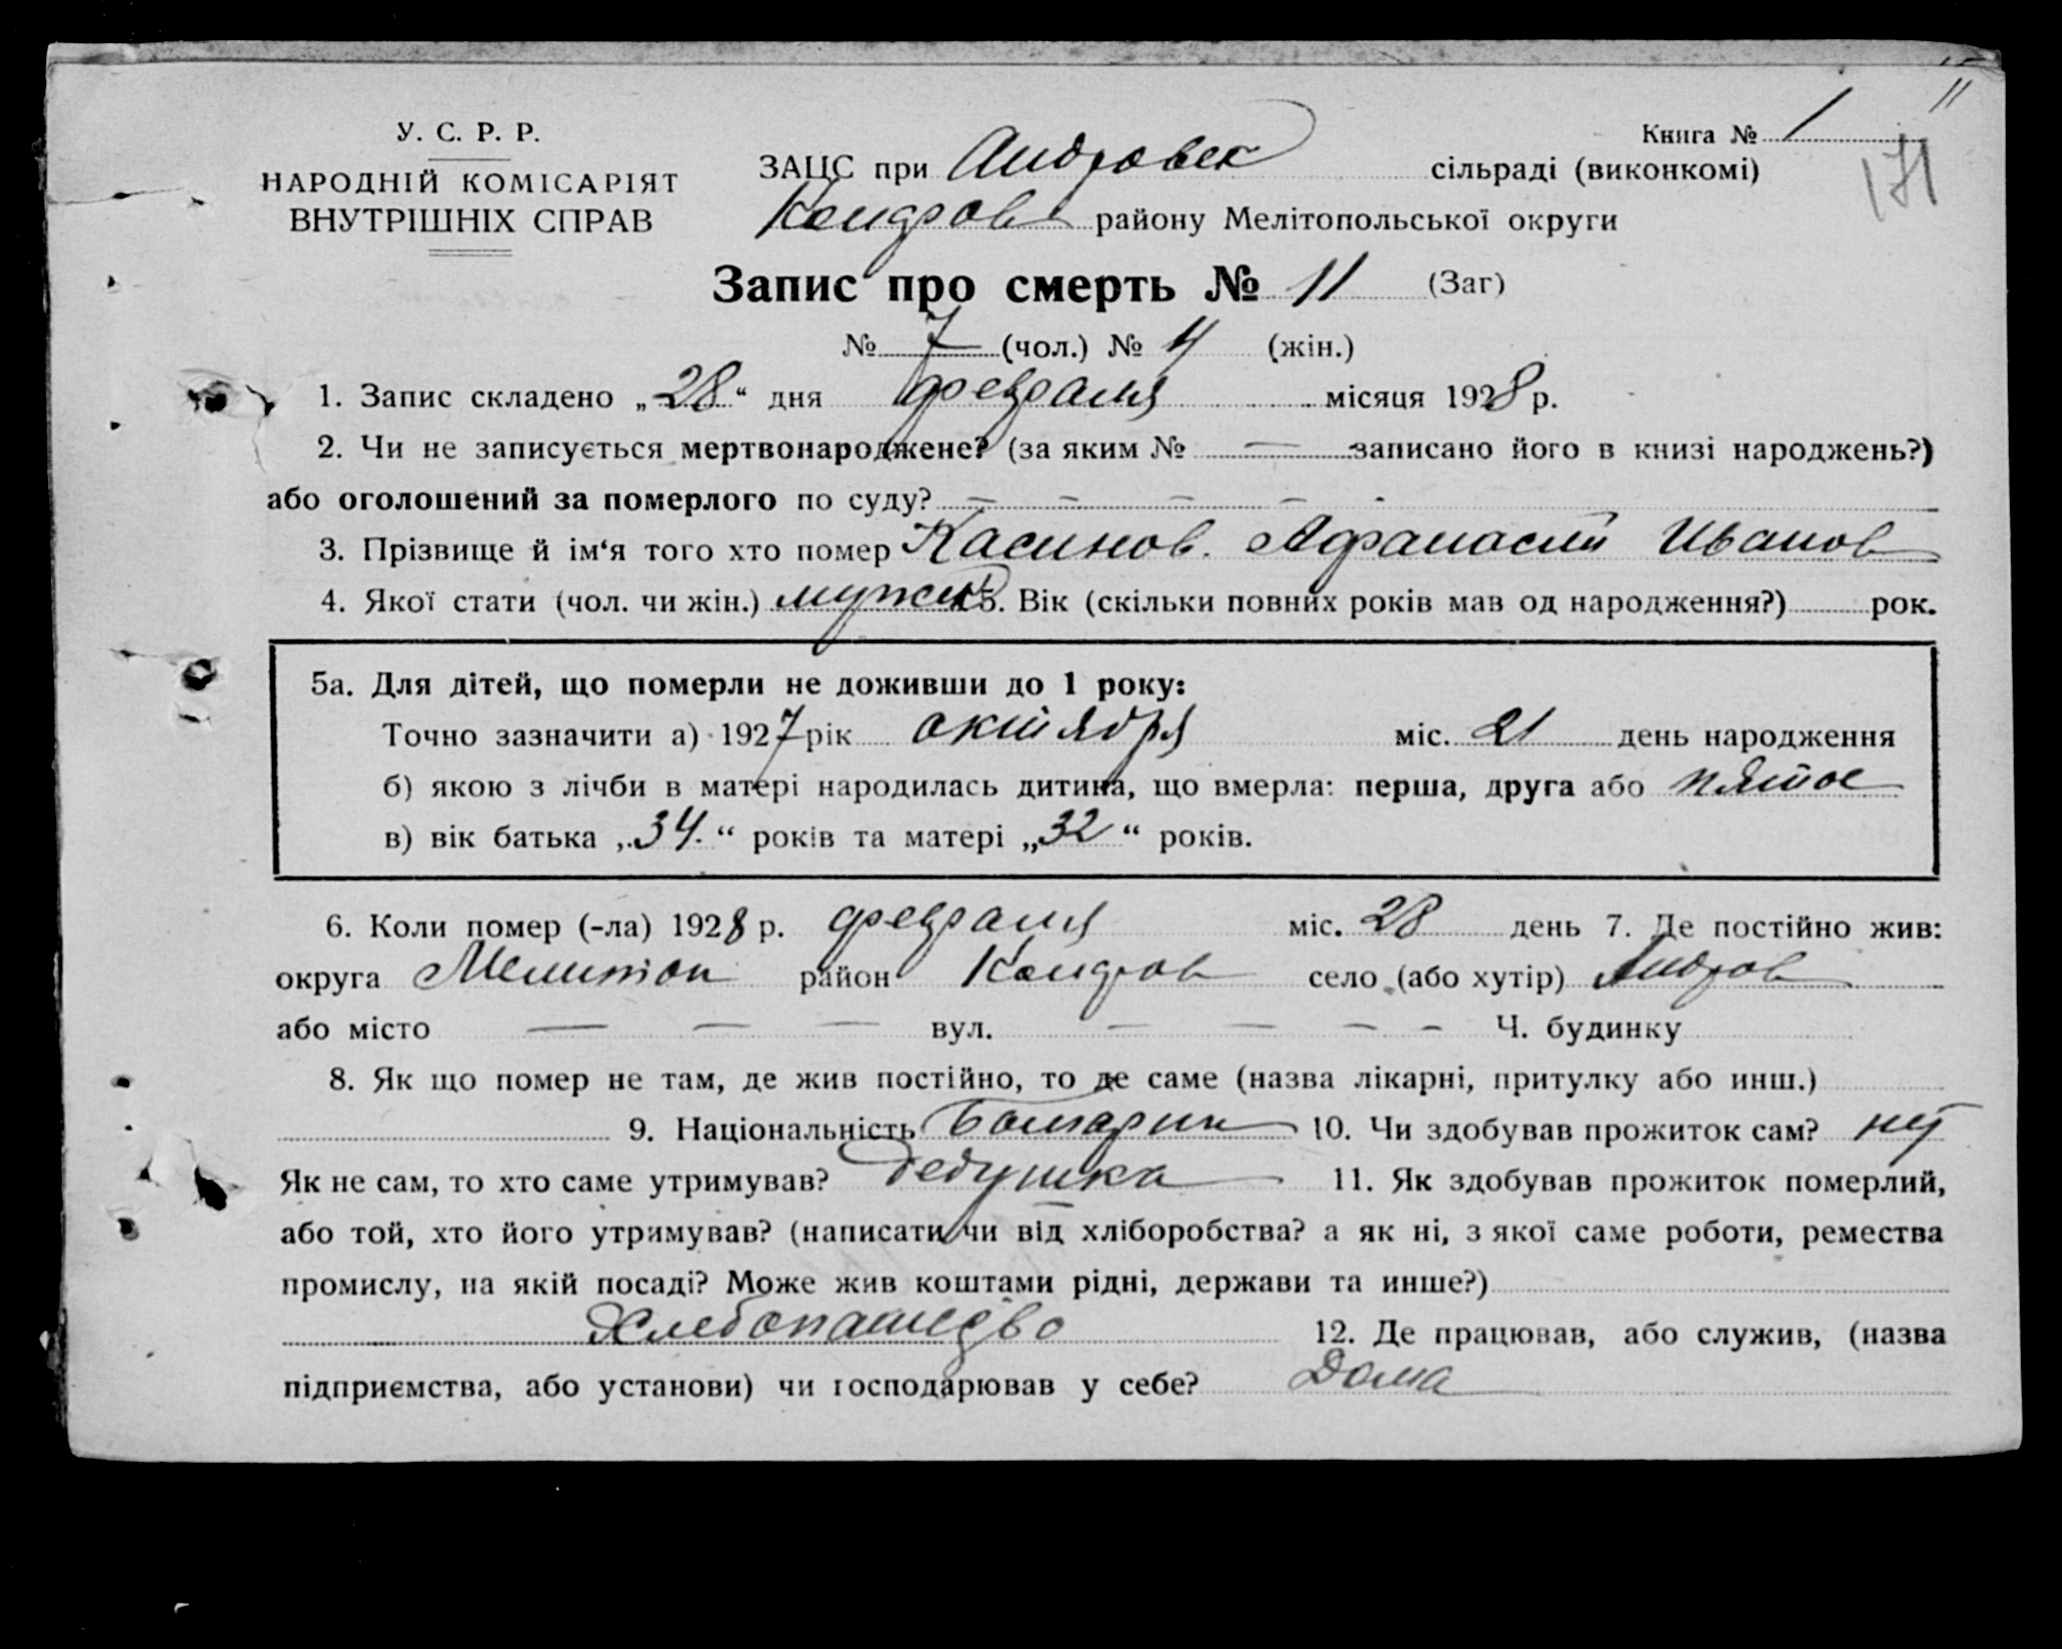 11
У. С. Р. Р.
НАРОДНІЙ КОМІСАРІЯТ
ВНУТРІШНІХ СПРАВ
Книга № 1
171
ЗАЦС при Андровск сільраді (виконкомі)
района Мелітопольської округи
Запис про смерть № 11 (Заг)
№ 7 (чол.) № 4 (жін.)
1. Запис складено „28“ дня февраля місяця 1928 р.
2. Чи не записується мертвонароджене? (за яким № — записано його в книзі народжень?)
або оголошений за померлого по суду? — — — —
3. Прізвище й ім‘я того хто помер Касинов. Афанасий Иванов
4. Якої стати (чол. чи жін.) 5. Вік (скільки повних років мав од народження?) рок.
5а. Для дітей, що померли не доживши до 1 року:
Точно зазначити а) 1927 рік октября міс. 21 день народження
б) якою з лічби в матері народилась дитина, що вмерла: перша, друга або пятое
в) вік батька „34.“ років та матері „32“ років.
6. Коли помер (-ла) 1928 р. февраля міс. 28 день 7. Де постійно жив:
округа Мелитоп район село (або хутір) Андров
або місто — — — вул. — — — — Ч. будинку
8. Як що помер не там, де жив постійно, то де саме (назва лікарні, притулку або инш.)
9. Національність Болгарин 10. Чи здобував прожиток сам? нет
Як не сам, то хто саме утримував? Дедушка 11. Як здобував прожиток померлий,
або той, хто його утримував? (написати чи від хліборобства? а як ні, з якої саме роботи, ремества
промислу, на якій посаді? Може жив коштами рідні, держави та инше?)
Хлебопашество 12. Де працював, або служив, (назва
підприємства, або установи) чи господарював у себе? Дома